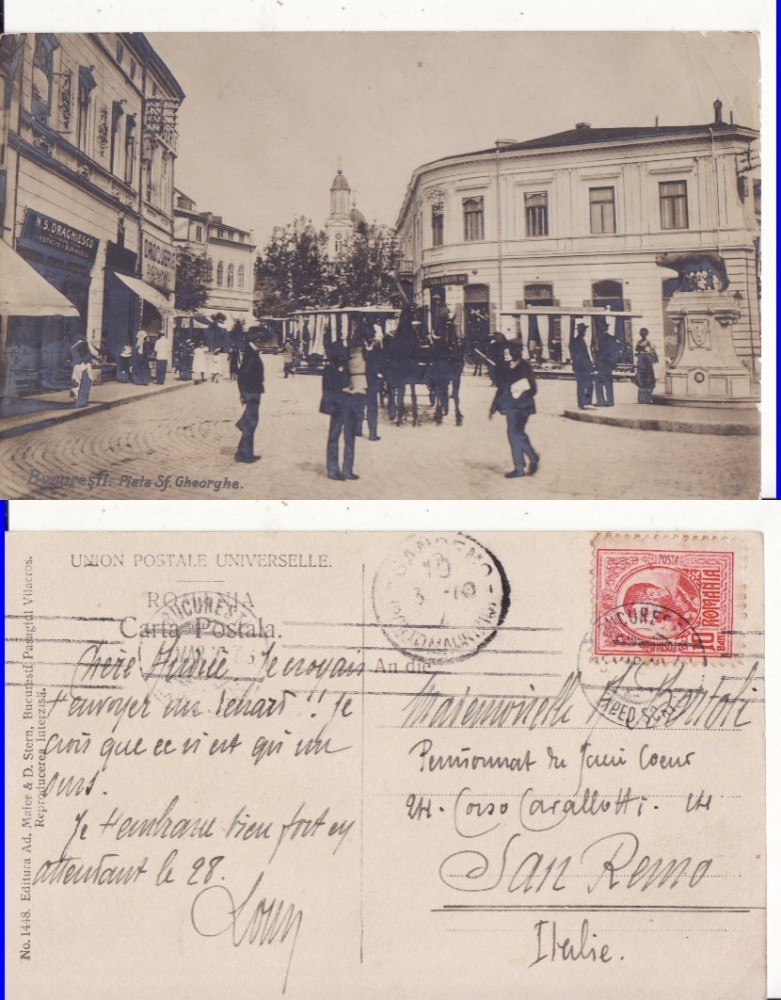 N. S. DRAGHIESCO
DROGUERIE
Bucureşti. Piata Sf. Gheorghe.
UNION POSTALE UNIVERSELLE.
ROMANIA
Carta Postala.
An die
No. 1448. Editura Ad. Maier & D. Stern, Bucuresti Pasagiul Vilacros.
Reproducerea interzisa.
SANREMO
BUCURESTI
BUCURESTI
POSTA
ROMANIA
10 BANI
Chère Je croyais
t'envoyer un renard!! Je
crois que ce n'est qu'un
ours.
Je t'embrasse bien fort en
attendant le 28.
Mademoiselle Bertoli
Pensionnat du Sacré Coeur
24. Corso Cavallotti. 24
San Remo
Italie.